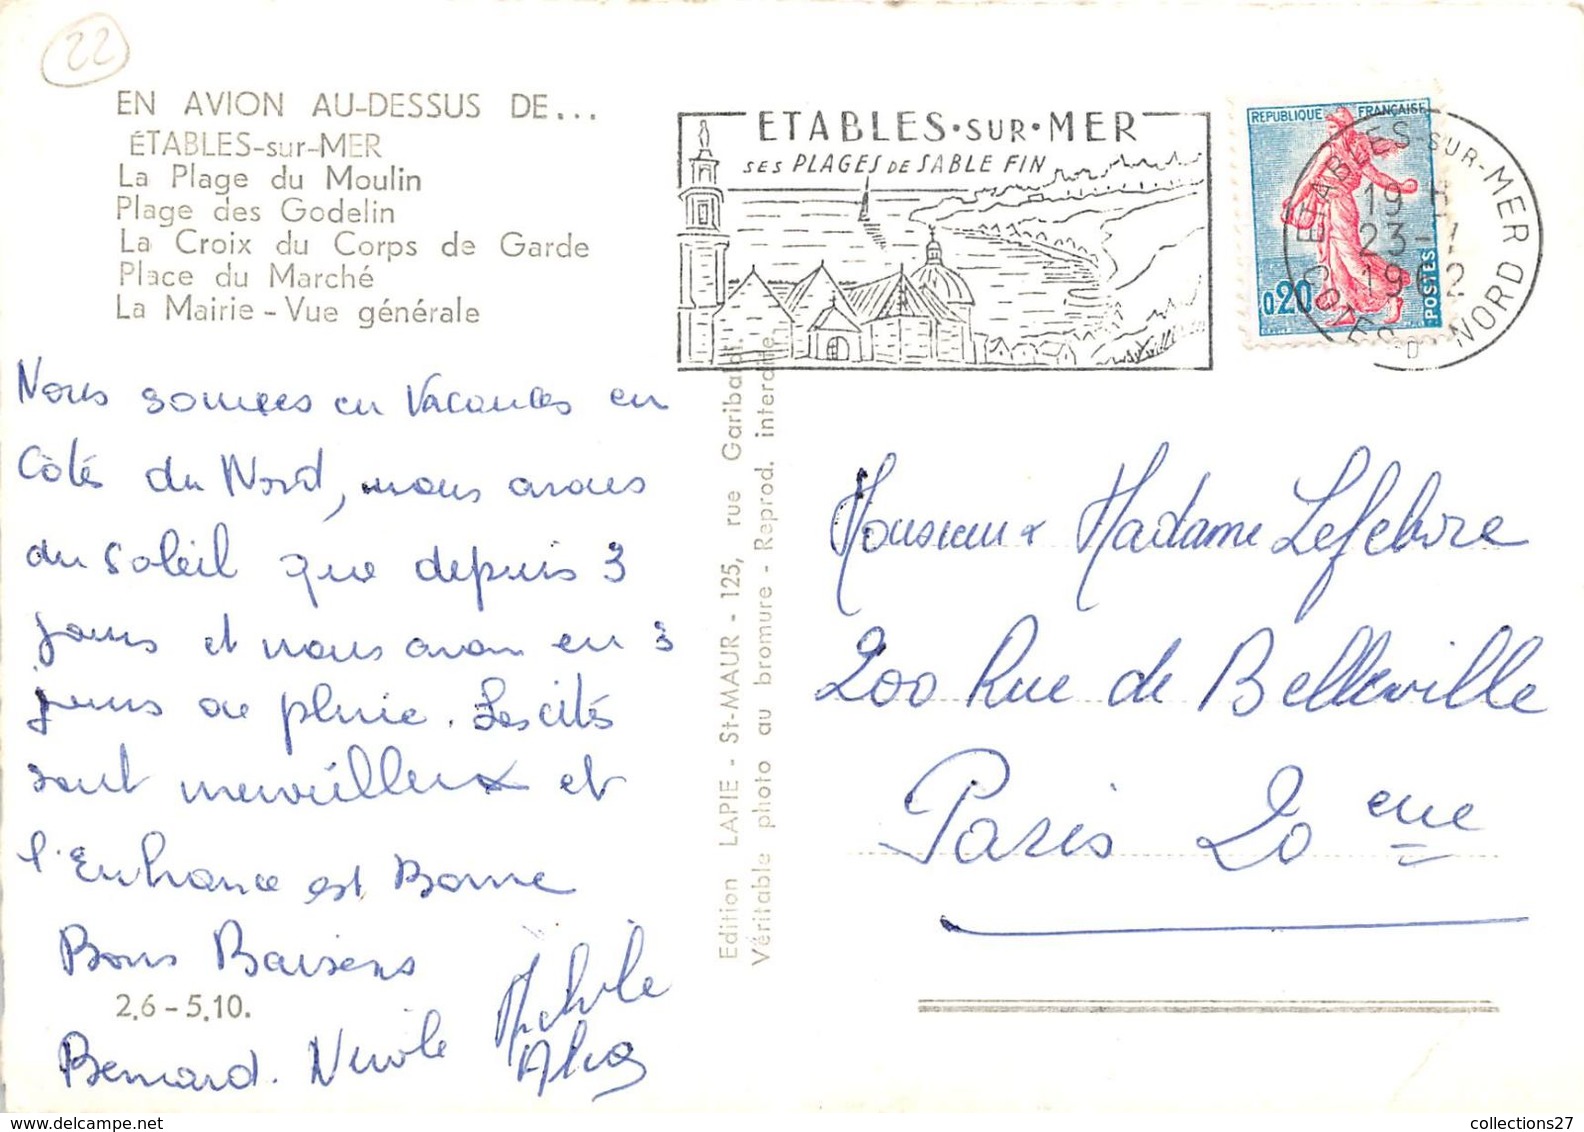 22
EN AVION AU-DESSUS DE...
ÉTABLES-sur-MER
La Plage du Moulin
Plage des Godelin
La Croix du Corps de Garde
Place du Marché
La Mairie - Vue générale
ETABLES·SUR·MER
SES PLAGES DE SABLE FIN
REPUBLIQUE FRANÇAISE
0,20
POSTES
ETABLES-SUR-MER
19 H
23-7
1962
COTES-D-NORD
Nous sommes en Vacances en
Côtés du Nord, nous avons
du soleil que depuis 3
jours et nous avon eu 3
jours de pluie. Les cités
sont merveilleux et
l'Enhance est Bonne
Bons Baisers
2.6 - 5.10.
Bernard. Nicole Michèle
Edition LAPIE - St-MAUR - 125, rue Garibaldi.
Véritable photo au bromure - Reprod. interdite.
Monsieur & Madame Lefebvre
200 Rue de Belleville
Paris 20 eme
collections27